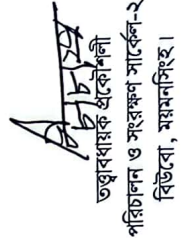 তত্ত্বাবধায়ক প্রকৌশলী
পরিচালন ও সংরক্ষণ সার্কেল-২
বিউবো, ময়মনসিংহ।